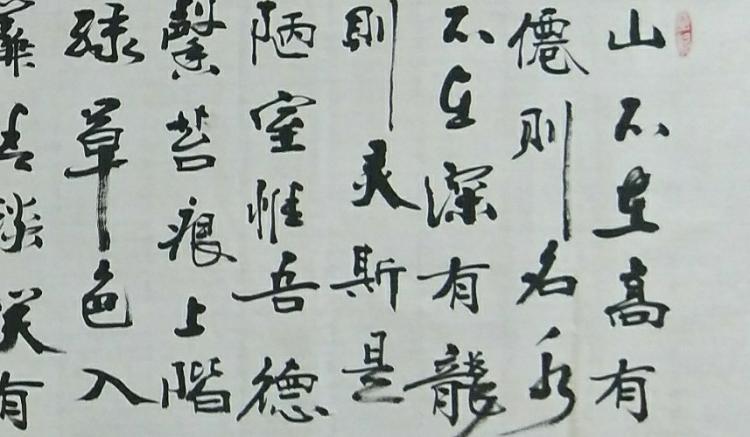 山不在高有
僊則名水
不在深有龍
則灵斯是
陋室惟吾德
馨苔痕上階
绿草色入
簾青談笑有